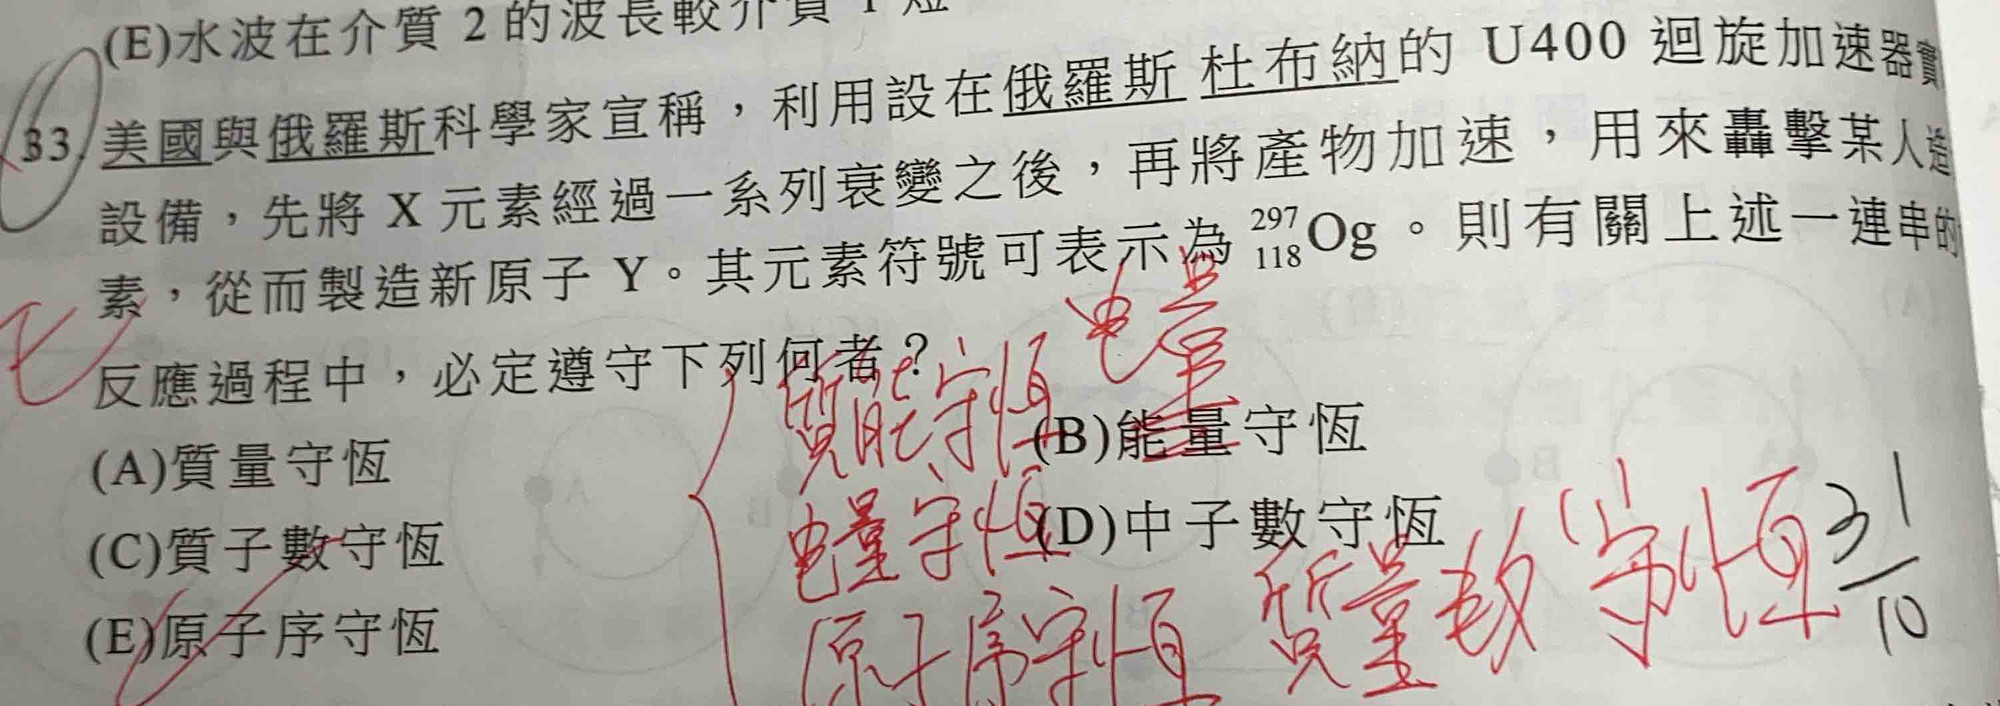 (E)水波在介質 2 的波長較介質 1 短
33. 美國與俄羅斯科學家宣稱，利用設在俄羅斯 杜布納的 U400 迴旋加速器實
設備，先將 X 元素經過一系列衰變之後，再將產物加速，用來轟擊某人造
素，從而製造新原子 Y。其元素符號可表示為 ²⁹⁷₁₁₈Og。則有關上述一連串的
反應過程中，必定遵守下列何者？
E
电量
質能守恆
(A)質量守恆
(B)能量守恆
电量守恆
(C)質子數守恆
(D)中子數守恆
質量數守恆
3 1/10
(E)原子序守恆
原子序守恆